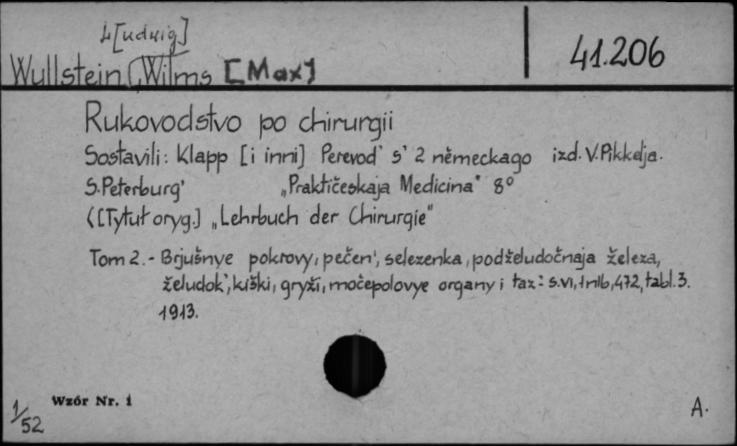 L[udwig]
Wullstein, Wilms [Max]
41.206
Rukovodstvo po chirurgii
Sostavili: Klapp [i inni] Perevod' s' 2 německago izd. V. Pikkelja.
S. Peterburg' „Praktičeskaja Medicina" 8°
([Tytuł oryg.] „Lehrbuch der Chirurgie"
Tom 2. - Brjušnye pokrovy, pečen', selezenka, podželudočnaja železa,
želudok', kiški, gryži, močepolovye organy i taz: s. VI, 1 nlb, 472, tabl. 3.
1913.
Wzór Nr. 1
1/52
A.